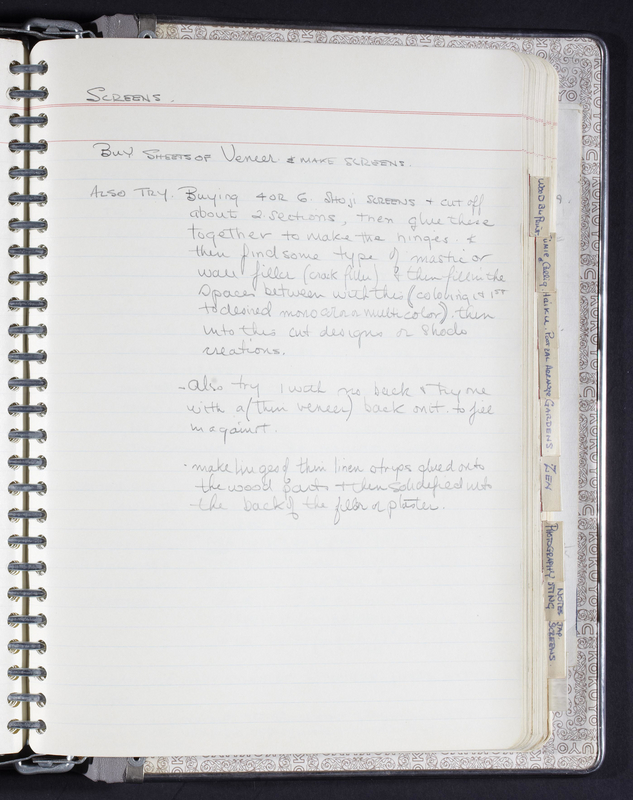 SCREENS.
BUY SHEETS OF VENEER & MAKE SCREENS.
ALSO TRY. Buying 4 OR 6. SHOJI SCREENS + cut off
about 2 sections, then glue these
together to make the hinges. &
then find some type of mastic or
wall filler (crack filler) & then fill in the
spaces between with this (coloring it 1ST
to desired mono or in multi color). then
into this cut designs or Shodo
creations.
- also try 1 with no back & try one
with a (thin veneer) back on it. to fill
in against.
- make hinges of thin linen strips glued onto
the wood parts + then solidified into
the back of the filler or plaster.
WOOD BLK PRINT.
HAIKU.
GARDENS
ZEN
PHOTOGRAPHY
NOTES JAP.
SCREENS